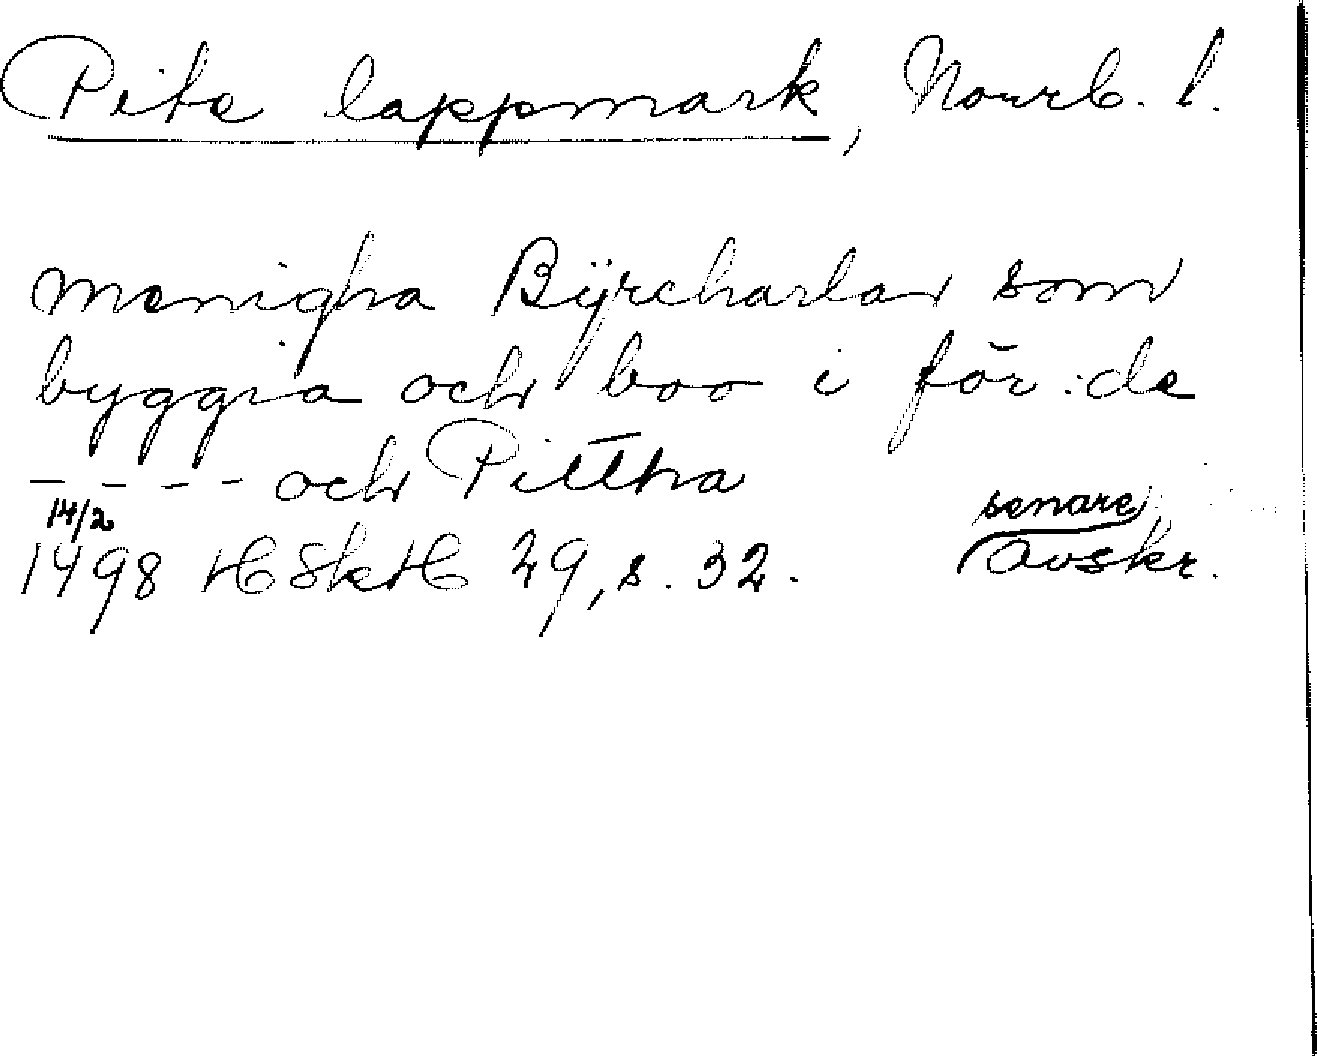 Pite lappmark, Norrb. l.
menigha Bÿrcharlar som
byggia och boo i för:de
- - - - och Pittha
14/2 senare
1498 HSkH 29, s. 32. avskr.